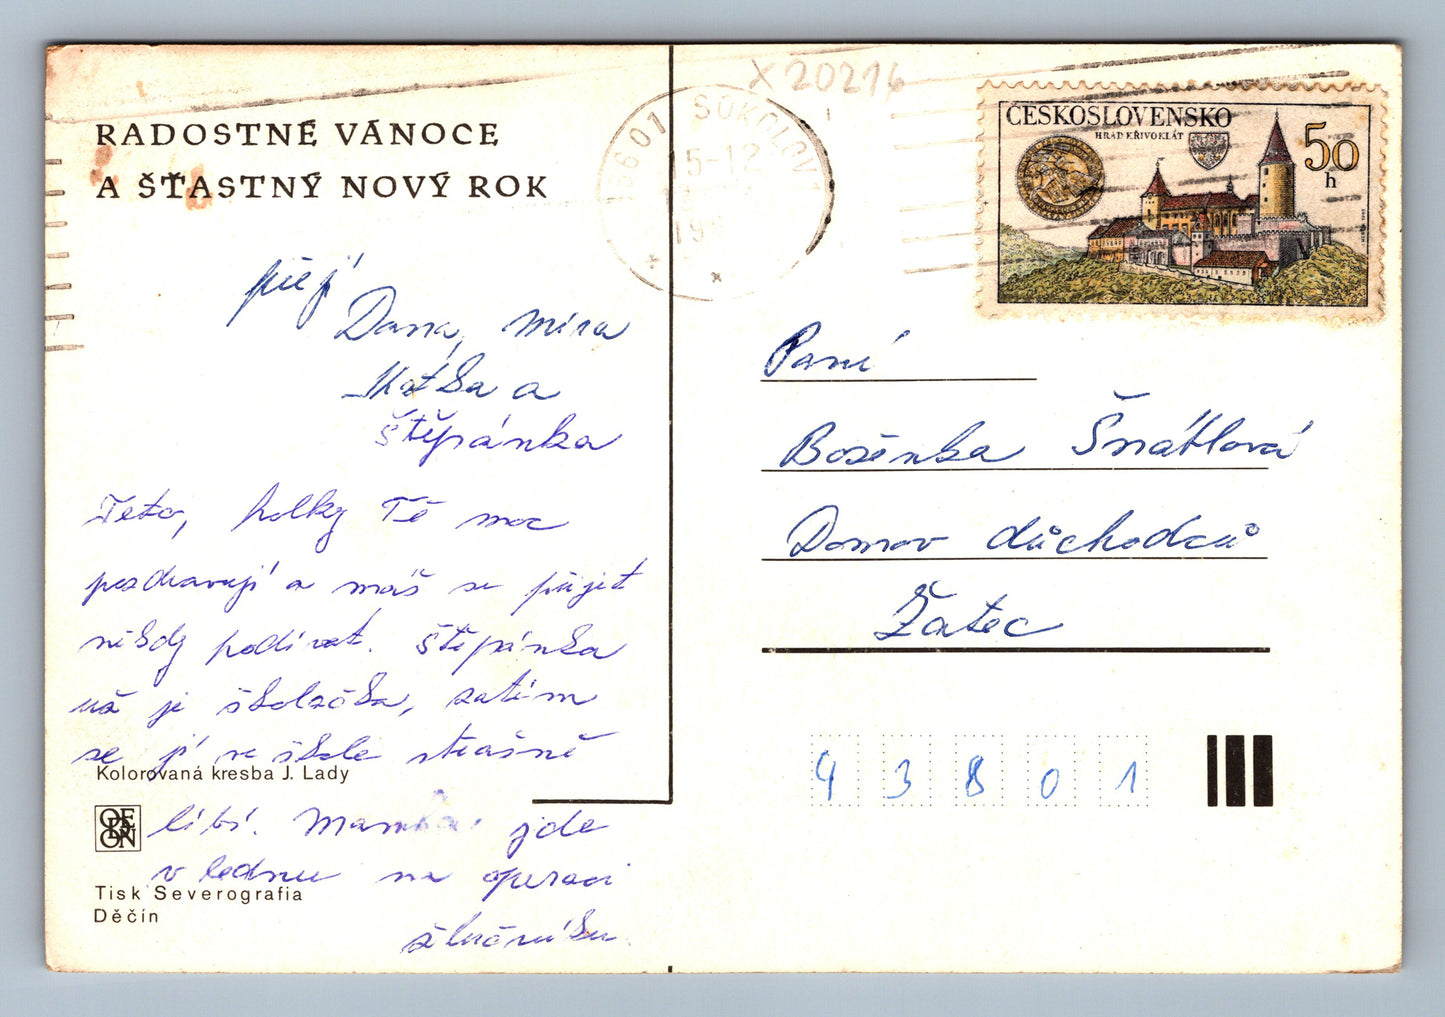 RADOSTNÉ VÁNOCE
A ŠŤASTNÝ NOVÝ ROK
přejí
Dana, Míra
Katka a
Štěpánka
Teto, holky Tě moc
pozdravují a máš se přijet
někdy podívat. Štěpánka
už je školačka, zatím
se jí ve škole strašně
Kolorovaná kresba J. Lady
líbí. Mamka jde
v lednu na operaci
žlučníku
ODEON
Tisk Severografia
Děčín
X 20216
356 01 SOKOLOV 1
15-12
19
ČESKOSLOVENSKO
HRAD KŘIVOKLÁT
50
h
Paní
Boženka Šnátlová
Domov důchodců
Žatec
43801